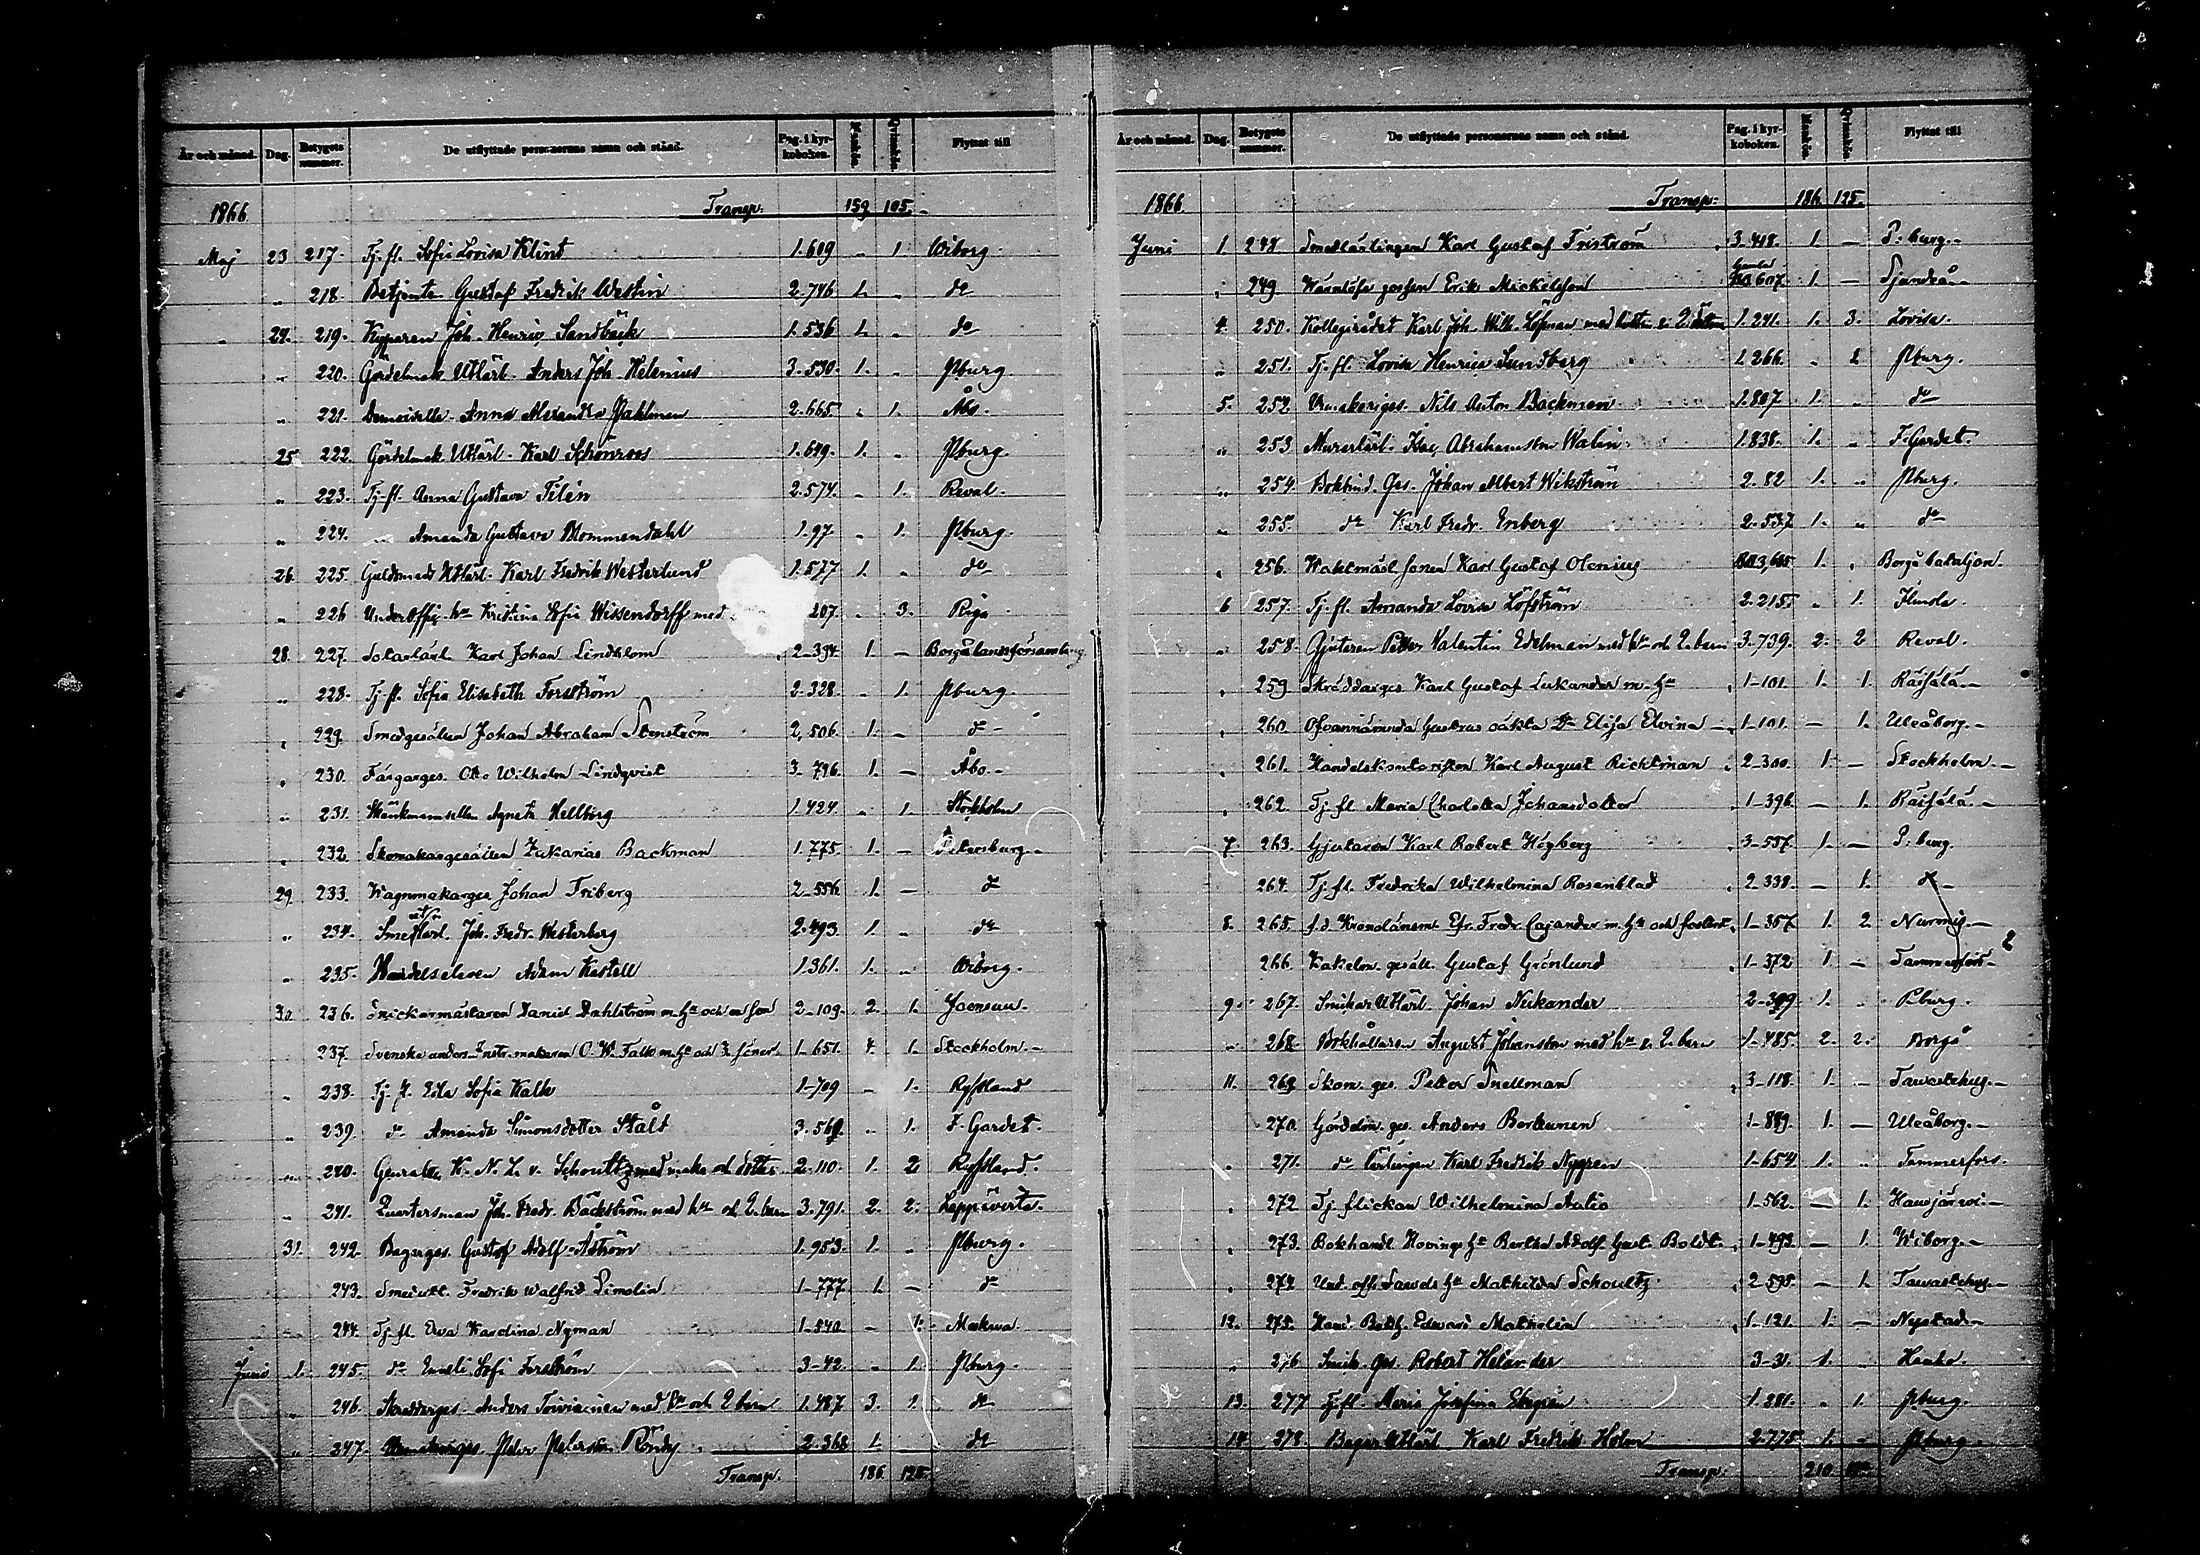 År och månad. Dag. Betygets nummer. De utflyttade personernas namn och stånd. Pag. i kyrkoboken. Mankön. Qvinkön. Flyttat till
1866 Transp. 159 105.
Maj 23 217. Tj. fl. Sofia Lovisa Klint 1.609 „ 1. Wiborg
„ 218. Betjente Gustaf Fredrik Westin 2.746 1. „ do
„ 24. 219. Kyparen Joh. Henric Sandbäck 1.536 1. „ do
„ 220. Gördelmak. Utlärl. Anders Joh. Helenius 3.530 1. „ Pburg.
„ 221. Demoiselle Anna Alexandra Pahlman 2.665 „ 1. Åbo.
25 222. Gördelmak. Utlärl. Karl Schönroos 1.649. 1. „ Pburg.
„ 223. Tj. fl. Anna Gustava Filén 2.574. „ 1. Reval.
„ 224. Amanda Gustava Blommendahl 1.97 „ 1. Pburg.
26. 225. Guldsmeds Utlärl. Karl Fredrik Westerlund 1.577 1. „ do
„ 226 Underoffic. hu Kristina Sofia Wissendorff med 207. „ 3. Riga
28. 227. Karl Johan Lindblom 2-394. 1. — Borgå landsförsamling
„ 228. Tj. fl. Sofia Elisabeth Forsström 2.328. „ 1. Pburg.
„ 229. Smedgesällen Johan Abraham Stenström 2,506. 1. — do
„ 230. Färgarges. Otto Wilhelm Lindqvist 3-796. 1. — Åbo.
„ 231. Agneta Hellberg 1.424. „ 1. Stockholm
„ 232. Skomakaregesällen Zakarias Backman 1.775. 1. — Petersburg.
29. 233. Wagnmakarges Johan Friberg 2-556. 1. — do
„ 234. Smed utlärl. Joh. Fredr. Westerberg 2.493 1. „ do
„ 235. Handelseleven Adam Kastell 1.361. 1. „ Wiborg.
30. 236. Snickarmästaren Daniel Dahlström m. hu och en son 2-109. 2. 1. Joensuu.
237. Svenske unders. Instr. makaren C. W. Falk m. hu och 3 söner 1-651. 4. 1. Stockholm.
„ 238. Tj. fl. Eda Sofia Kalk 1-709 — 1. Ryssland
„ 239. do Amanda Simonsdotter Stålt 3.569. „ 1. F. Gardet.
„ 240. General K. N. L. v. Schoultz med maka och dotter 2.110. 1. 2 Ryssland.
„ 241. Quartersman Joh. Fredr. Bäckström med hu och 2. barn 3.791. 2. 2. Leppävirta.
31. 242. Bagarges. Gustaf Adolf Åström 1.953. 1. „ Pburg.
243. Smedutl. Fredrik Walfrid Limolin 1-777 1. — do
244. Tj. fl. Ewa Karolina Nyman 1-540 — 1. Moskwa
Juni 1. 245. do Emeli Sofi Forsström 3-42. „ 1. Pburg.
„ 246. Skräddarges. Anders Toiviainen med hu och 2 barn 1.487 3. 1. do
„ 247. Peter Peterson Röndy 2.368 1. do
Transp. 186. 125.
År och månad. Dag. Betygets nummer. De utflyttade personernas namn och stånd. Pag. i kyrkoboken. Mankön. Qvinkön. Flyttat till
1866. Transp: 186. 125.
Juni 1. 248. Smedlärlingen Karl Gustaf Friström 3.418. 1. — P:burg.
„ 249 Erik Mickelsson 607. 1. — Sjundeå
4. 250. Kollegirådet Karl Joh. Wilh. Löfman med hustru o. 2 döttrar 1.241. 1. 3. Lovisa.
„ 251. Tj. fl. Lovisa Henrica Sundberg 1.266. „ 1 Pburg.
5. 252 Urmakeriges. Nils Anton Backman 1.807 1. „ do
„ 253 Murarlärl. Isac Abrahamson Walin 1.838. 1. „ F. Gardet.
„ 254 Bokbind. Ges. Johan Albert Wikström 2.82 1. „ Pburg.
„ 255. do Karl Fredr. Enberg 2-537 1. „ do
„ 256. Waktmäst. sonen Karl Gustaf Olenius 1. „ Borgå bataljon.
6 257. Tj. fl. Amanda Lovisa Löfström 2.215. „ 1. Ilmola.
„ 258. Gjutaren Petter Valentin Edelman med hu och 2. barn 3.739. 2. 2 Reval.
„ 259 Skräddarges Karl Gustaf Lukander m. hu 1-101. 1. 1. Räisälä.
„ 260. Ofvannämnda hustrus oäkta dr Elisa Elvina 1-101. — 1. Uleåborg.
„ 261. Handelskontoristen Karl August Richtman 2-300. 1. — Stockholm.
„ 262. Tj. fl. Maria Charlotta Johansdotter 1-396. — 1. Räisälä.
7. 263. Gjutaren Karl Robert Högberg 3-557. 1. — P:burg.
264. Tj. fl. Fredrika Wilhelmina Rosenblad 2-338. — 1. do
8. 265. f.d. Kronolänsm. Efr. Fredr. Cajander m. hu och fosterd. 1-357 1. 2. Nurmis.
266. Kakelm. gesäll. Gustaf Grönlund 1-372 1 — Tammerfors
2
9. 267. Snikar Utlärl. Johan Nukander 2-399 1. „ P.burg.
„ 268 Bokhållaren August Johansson med hu o. 2. barn 1-485. 2. 2. Borgå
11. 269 Skom. ges. Petter Snellman 3-118. 1. — Tavastehus.
270. Gördelm. ges. Anders Borkunen 1-889. 1. — Uleåborg.
„ 271. do lärlingen Karl Fredrik Nygren 1-654 1. „ Tammerfors.
„ 272 Tj. flickan Wilhelmina Autio 1-562. — 1. Hausjärvi.
„ 273. Bokhandl. Hovings hu Bertha Adolf. Gust. Boldt 1-493 — 1. Wiborg.
„ 274 Und. off. hu Mathilda Schoultz 2-595. — 1. Tavastehus.
12. 275. Hand. Bokh. Edward Matholin 1-121. 1. — Nystad.
„ 276 Snik. Ges. Robert Helander 3-31. 1. „ Hauho.
13. 277 Tj. fl. Maria Josefina Stegrén 1.281. „ 1. Pburg.
14 278. Bagar Utlärl. Karl Fredrik Holm 2.775. 1. — Pburg.
Transp: 210